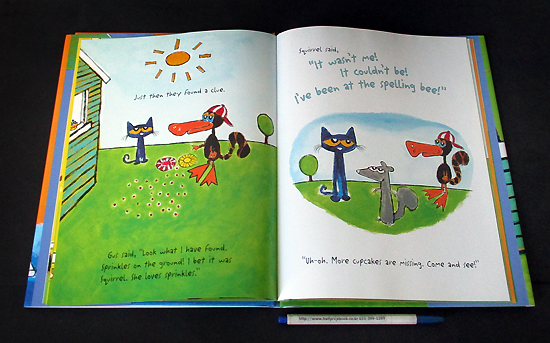 Just then they found a clue.
Gus said, "Look what I have found.
Sprinkles on the ground! I bet it was
Squirrel. She loves sprinkles."
Squirrel said,
"It wasn't me!
It couldn't be!
I've been at the spelling bee!"
"Uh-oh. More cupcakes are missing. Come and see!"